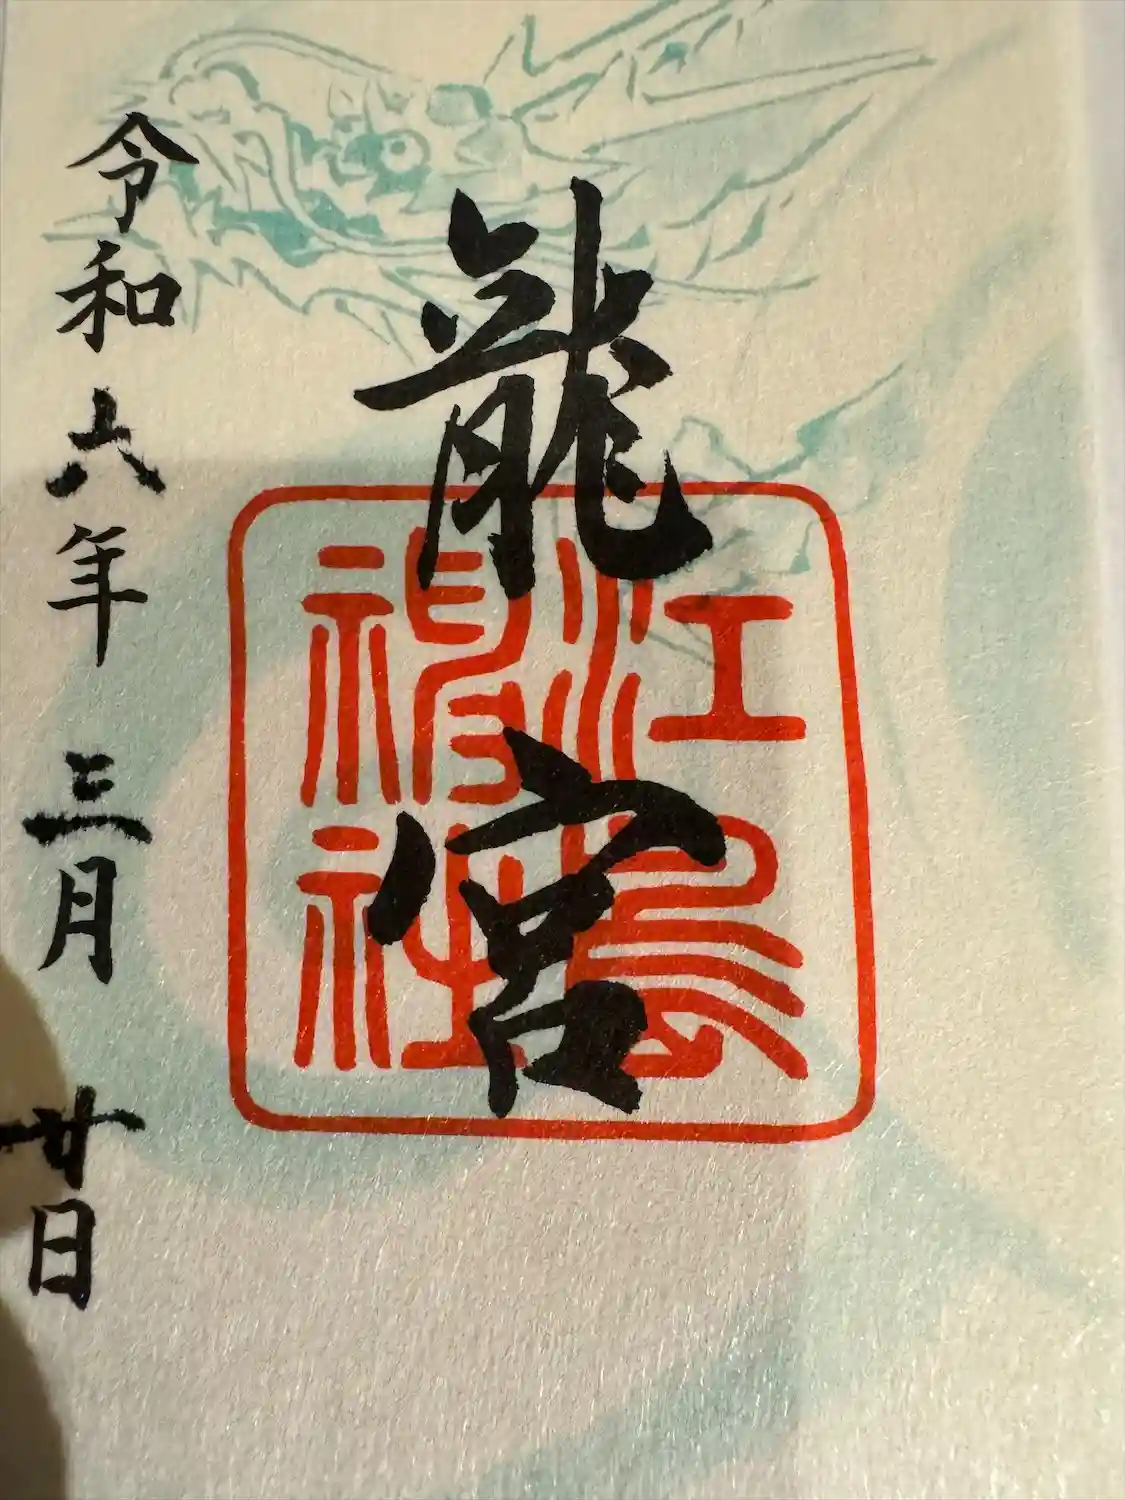 龍宮
江島神社
令和六年三月廿日